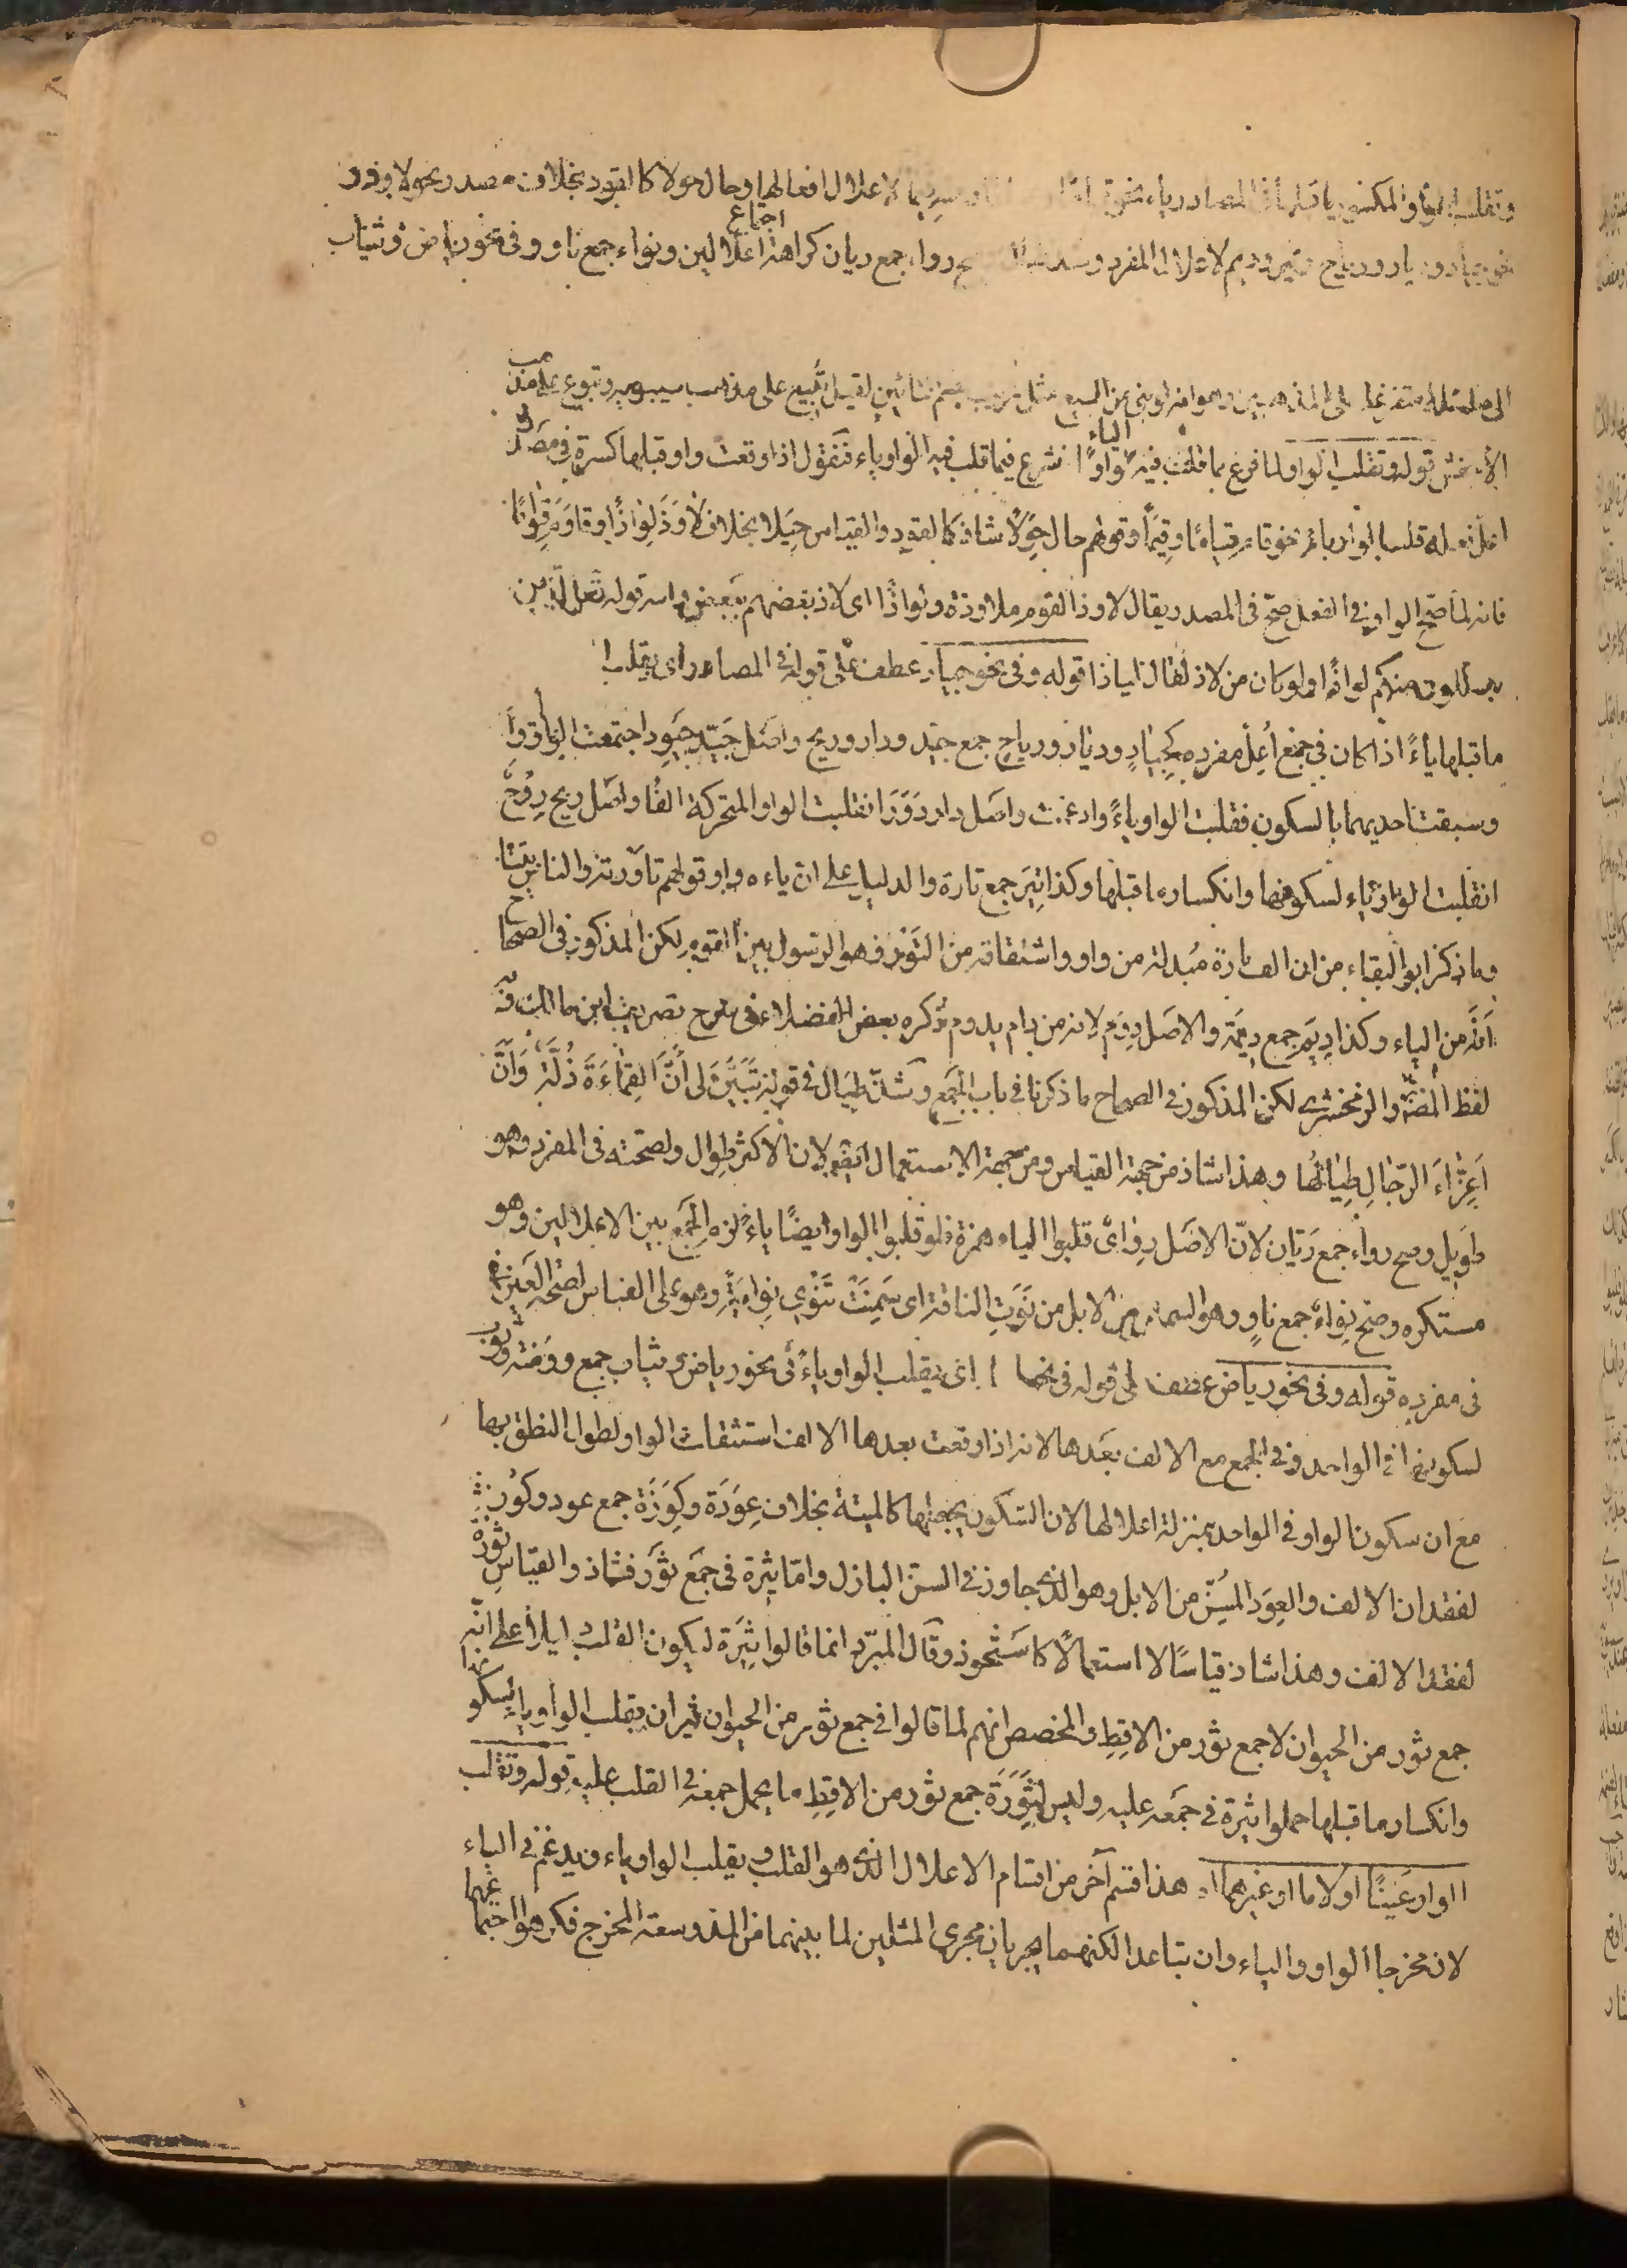 وتقلب الواو المكسور ما قبلها في المصادر ياء نحو لاعلال افعالها وحال حولا كالقود بخلاف مصدر نحو لاوذ
نحو جياد وديار ورياح وتير وديم لاعلال المفرد وشذ طيال وصح رواء جمع ريان كراهة اجتماع اعلالين ونواء جمع ناو وفي نحو رياض وثياب
على المذهبين وهو انه لو بني من البيع مثل ترتب بضم التائين لقيل تبيع على مذهب سيبويه وتبوع على مذهب
الأخفش قوله وتقلب الواو لما فرغ مما قلبت فيه الياء واوًا شرع فيما قلب فيه الواو ياء فنقول اذا وقعت واو قبلها كسرة في مصدر
اعل فعله قلب الواو ياء نحو قام قِيامًا وقِيَمًا وقولهم حال حِوَلًا شاذ كالقود والقياس حِيَلا بخلاف لاوَذَ لِواذًا وقاوَمَ قِوامًا
فانه لما صح الواو في الفعل صح في المصدر يقال لاوذ القوم ملاوذة ولواذًا اى لاذ بعضهم ببعض ومنه قوله تعالى الذين
يتسللون منكم لواذًا ولو كان من لاذ لقال لياذا قوله وفى نحو جياد عطف على قوله في المصادر اى يقلب
ما قبلها ياءً اذا كان في جمع اُعِلّ مفرده كجِيادٍ وديار ورياحٍ جمع جيّد ودار وريح واصل جيّد جَيْوِد اجتمعت الياء والواو
وسبقت احديهما بالسكون فقلبت الواو ياءً وادغمت واصل دار دَوَرَ انقلبت الواو المتحركة الفًا واصل ريح رِوْحٌ
انقلبت الواو ياء لسكونها وانكسار ما قبلها وكذا تِيَر جمع تارة والدليل على ان ياءه واو قولهم تاورته والناس
وما ذكر ابو البقاء من ان الف تارة مُبدلة من واو واشتقاقه من التَوْر وهو الرسول بين القوم لكن المذكور في الصحاح
اَنَّه من الياء وكذا دِيَم جمع دِيمَة والاصل دِوَم لانه من دام يدوم ذكره بعض الفضلاء في شرح تصريف ابن مالك
لفظ المصنف والزمخشرى لكن المذكور في الصحاح ما ذكرنا في باب الجمع وشذ طِيَال في قوله تَبَيَّنَ لى أنَّ القَماءَةَ ذُلَّةٌ وَأنَّ
اَعِزّاءَ الرّجَالِ طِيَالُهَا وهذا شاذ من جهة القياس ومن جهة الاستعمال ايضًا لان الاكثر طِوال ولصحته في المفرد وهو
طويل وصح رواء جمع رَيّان لانّ الاصل رِوَاى قلبوا الياء همزة فلو قلبوا الواو ايضًا ياءً لزم الجمع بين الاعلالين وهو
مستكره وصح نِواء جمع ناوٍ وهو السمين من الابل من نَوَتِ الناقة اى سَمِنَتْ تَنْوِى نِوَايَةً وهو على القياس لصحة العين
فى مفرده قوله وفى نحو رياض عطف على قوله في نحو اى تقلب الواو ياءً فى نحو رياض وثياب جمع روضة وثوب
لسكونها في الواحد وفي الجمع مع الالف بعدها لانه اذا وقعت بعدها الالف استثقلت الواو لطول النطق بها
مع ان سكون الواو في الواحد بمنزلة اعلالها لان السكون يجعلها كالميتة بخلاف عِوَدَة وكِوَزَة جمع عود وكوز
لفقدان الالف والعِوَد المُسِنّ من الابل وهو الذى جاوز في السن البازل وامّا ثِيَرة فى جمع ثَور فشاذ والقياس ثِوَرَة
لفقد الالف وهذا شاذ قياسًا لا استعمالًا كاستَحْوَذ وقال المبرّد انما قالوا ثِيَرَة ليكون القلب دليلا على انّه
جمع ثور من الحيوان لا جمع ثور من الاقِطِ والمخصص انهم لما قالوا في جمع ثور من الحيوان ثيران بقلب الواو ياء لسكونها
وانكسار ما قبلها حملوا ثيرة في جمعه عليه وليس لِثِوَرَة جمع ثور من الاقِطِ ما يحمل جمعه في القلب عليه قوله وتقلب
الواو عَينًا او لاما او غيرهما اه هذا قسم آخر من اقسام الاعلال الذى هو القلب و يقلب الواو ياء ويدغم في الياء
لان مخرجا الواو والياء وان تباعدا لكنهما يجريان مجرى المثلين لما بينهما من المد وسعة المخرج فكرهوا اجتماعهما